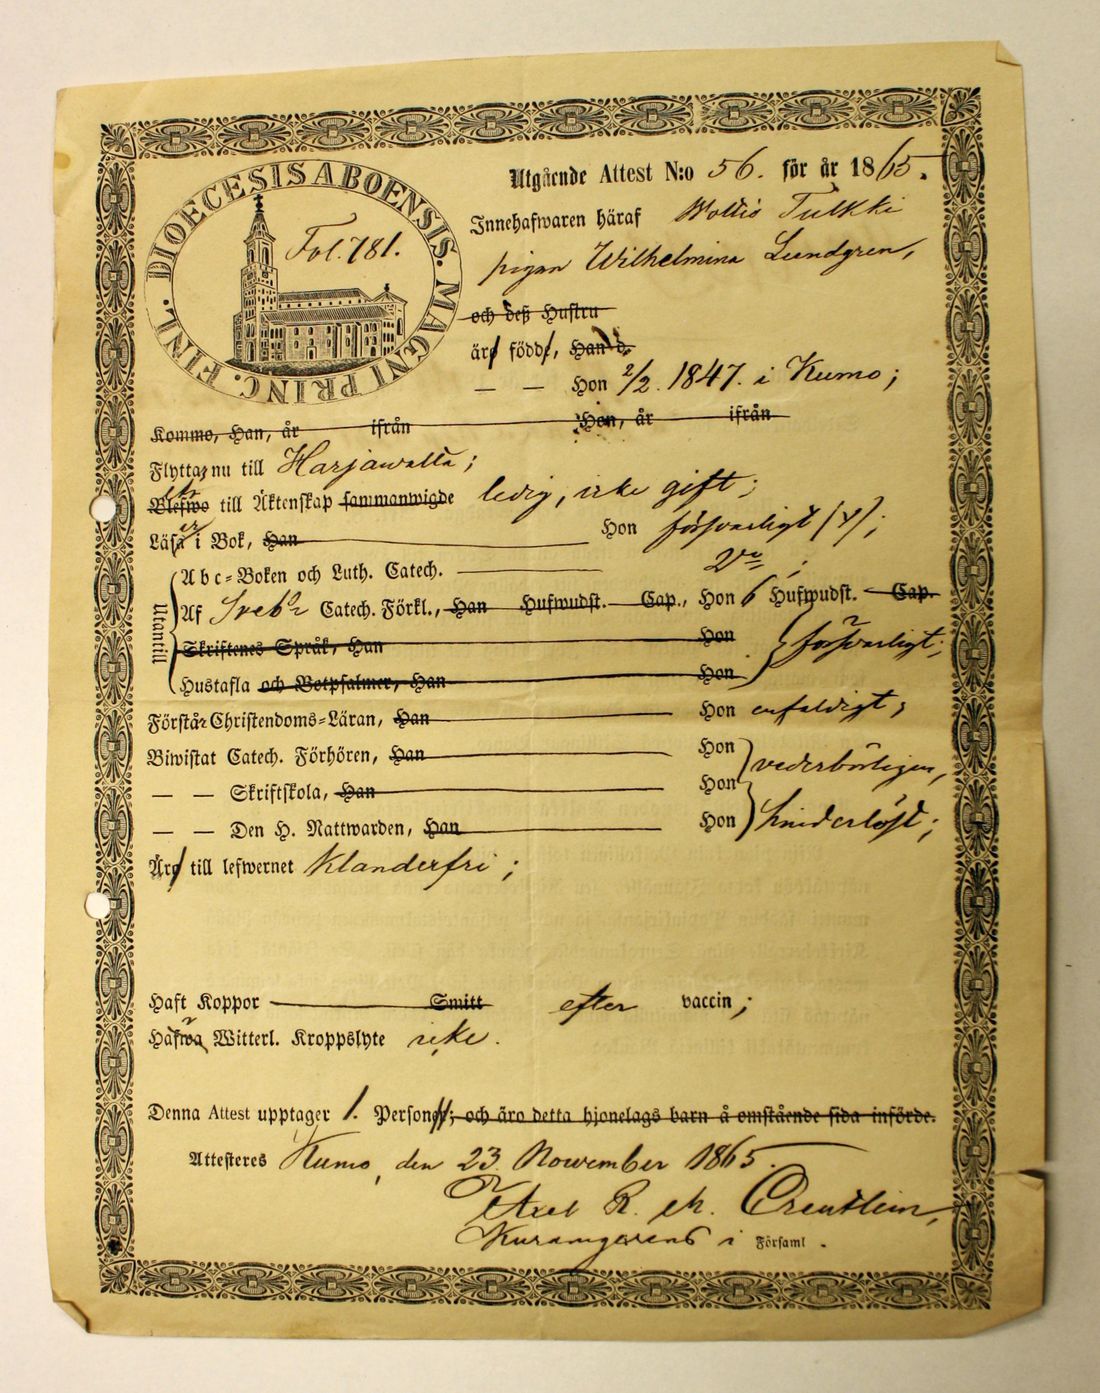 DIOECESIS ABOENSIS. MAGNI PRINC. FINL.
Fol. 781.
Utgående Attest N:o 56. för år 1865.
Innehafwaren häraf Tulkki
pigan Wilhelmina Lundgren,
och deß Hustru
äro födde, Han d.
— — Hon 2/2. 1847. i Kumo;
Kommo, Han, år ifrån Hon, år ifrån
Flytta nu till Harjawalta;
Blefwo till Äktenskap sammanwigde ledig, icke gift;
Läsa i Bok, Han Hon försvarligt (v);
Utantill
Abc-Boken och Luth. Catech.
Af Sveb. Catech. Förkl., Han Hufwudst. Cap., Hon 6 Hufwudst. Cap.
Skriftenes Språk, Han Hon försvarligt;
Hustafla och Botpsalmer, Han Hon
Förstår Christendoms-Läran, Han Hon enfaldigt;
Biwistat Catech. Förhören, Han Hon vederbörligen,
— — Skriftskola, Han Hon
— — Den H. Nattwarden, Han Hon hinderlöst;
Äro till lefwernet Klanderfri;
Haft Koppor Smitt efter vaccin;
Hafwa Witterl. Kroppslyte icke.
Denna Attest upptager 1. Personer; och äro detta hjonelags barn å omstående sida införde.
Attesteres Kumo, den 23 November 1865.
Axel R. M.
i Församl.